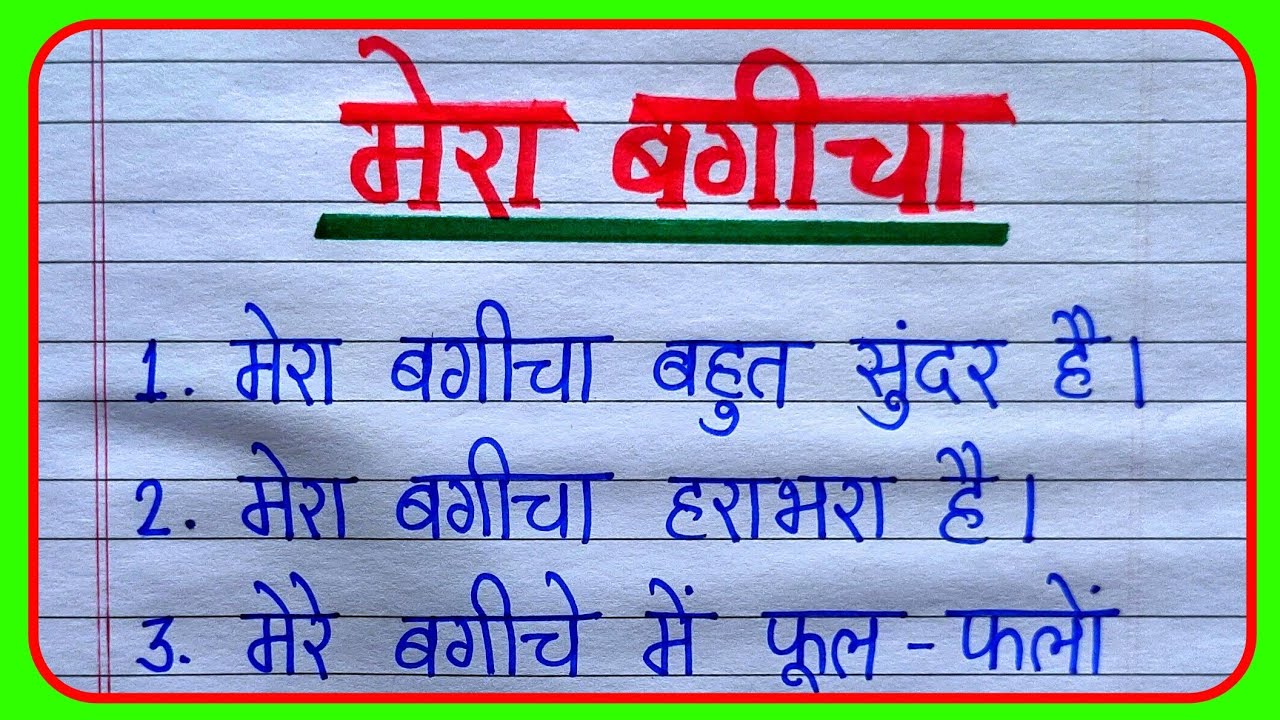 मेरा बगीचा
1. मेरा बगीचा बहुत सुंदर है।
2. मेरा बगीचा हराभरा है।
3. मेरे बगीचे में फूल-फलों